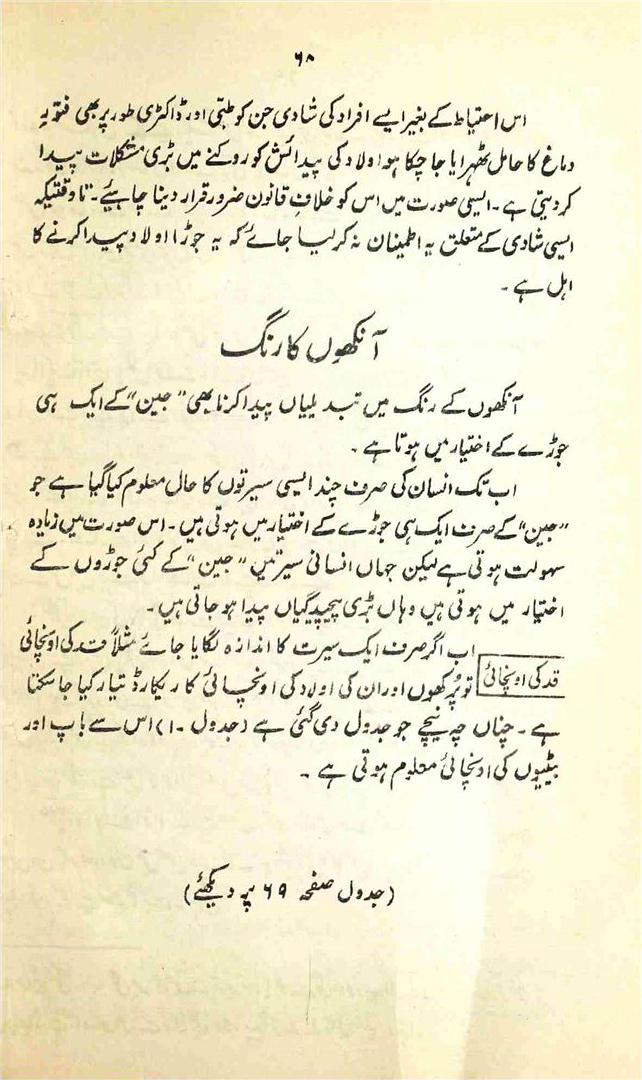 ۶۸
اس احتیاط کے بغیر ایسے افراد کی شادی جن کو طبّی اور ڈاکٹری طور پر بھی فتوریہ
دماغ کا حامل ٹھہرایا جا چکا ہو اولاد کی پیدائش کو روکنے میں بڑی مشکلات پیدا
کر دیتی ہے۔ ایسی صورت میں اس کو خلافِ قانون ضرور قرار دینا چاہیئے۔ تاوقتیکہ
ایسی شادی کے متعلق یہ اطمینان نہ کر لیا جائے کہ یہ جوڑا اولاد پیدا کرنے کا
اہل ہے۔
آنکھوں کا رنگ
آنکھوں کے رنگ میں تبدیلیاں پیدا کرنا بھی "جین" کے ایک ہی
جوڑے کے اختیار میں ہوتا ہے۔
اب تک انسان کی صرف چند ایسی سیرتوں کا حال معلوم کیا گیا ہے جو
"جین" کے صرف ایک ہی جوڑے کے اختیار میں ہوتی ہیں۔ اس صورت میں زیادہ
سہولت ہوتی ہے لیکن جہاں انسانی سیرتیں "جین" کے کئی جوڑوں کے
اختیار میں ہوتی ہیں وہاں بڑی پیچیدگیاں پیدا ہو جاتی ہیں۔
اب اگر صرف ایک سیرت کا اندازہ لگایا جائے مثلاً قد کی اونچائی
قد کی اونچائی
تو پُرکھوں اور ان کی اولاد کی اونچائی کا ریکارڈ تیار کیا جا سکتا
ہے۔ چناں چہ نیچے جو جدول دی گئی ہے (جدول ۔۱) اس سے باپ اور
بیٹیوں کی اونچائی معلوم ہوتی ہے۔
(جدول صفحہ ۶۹ پر دیکھئے)